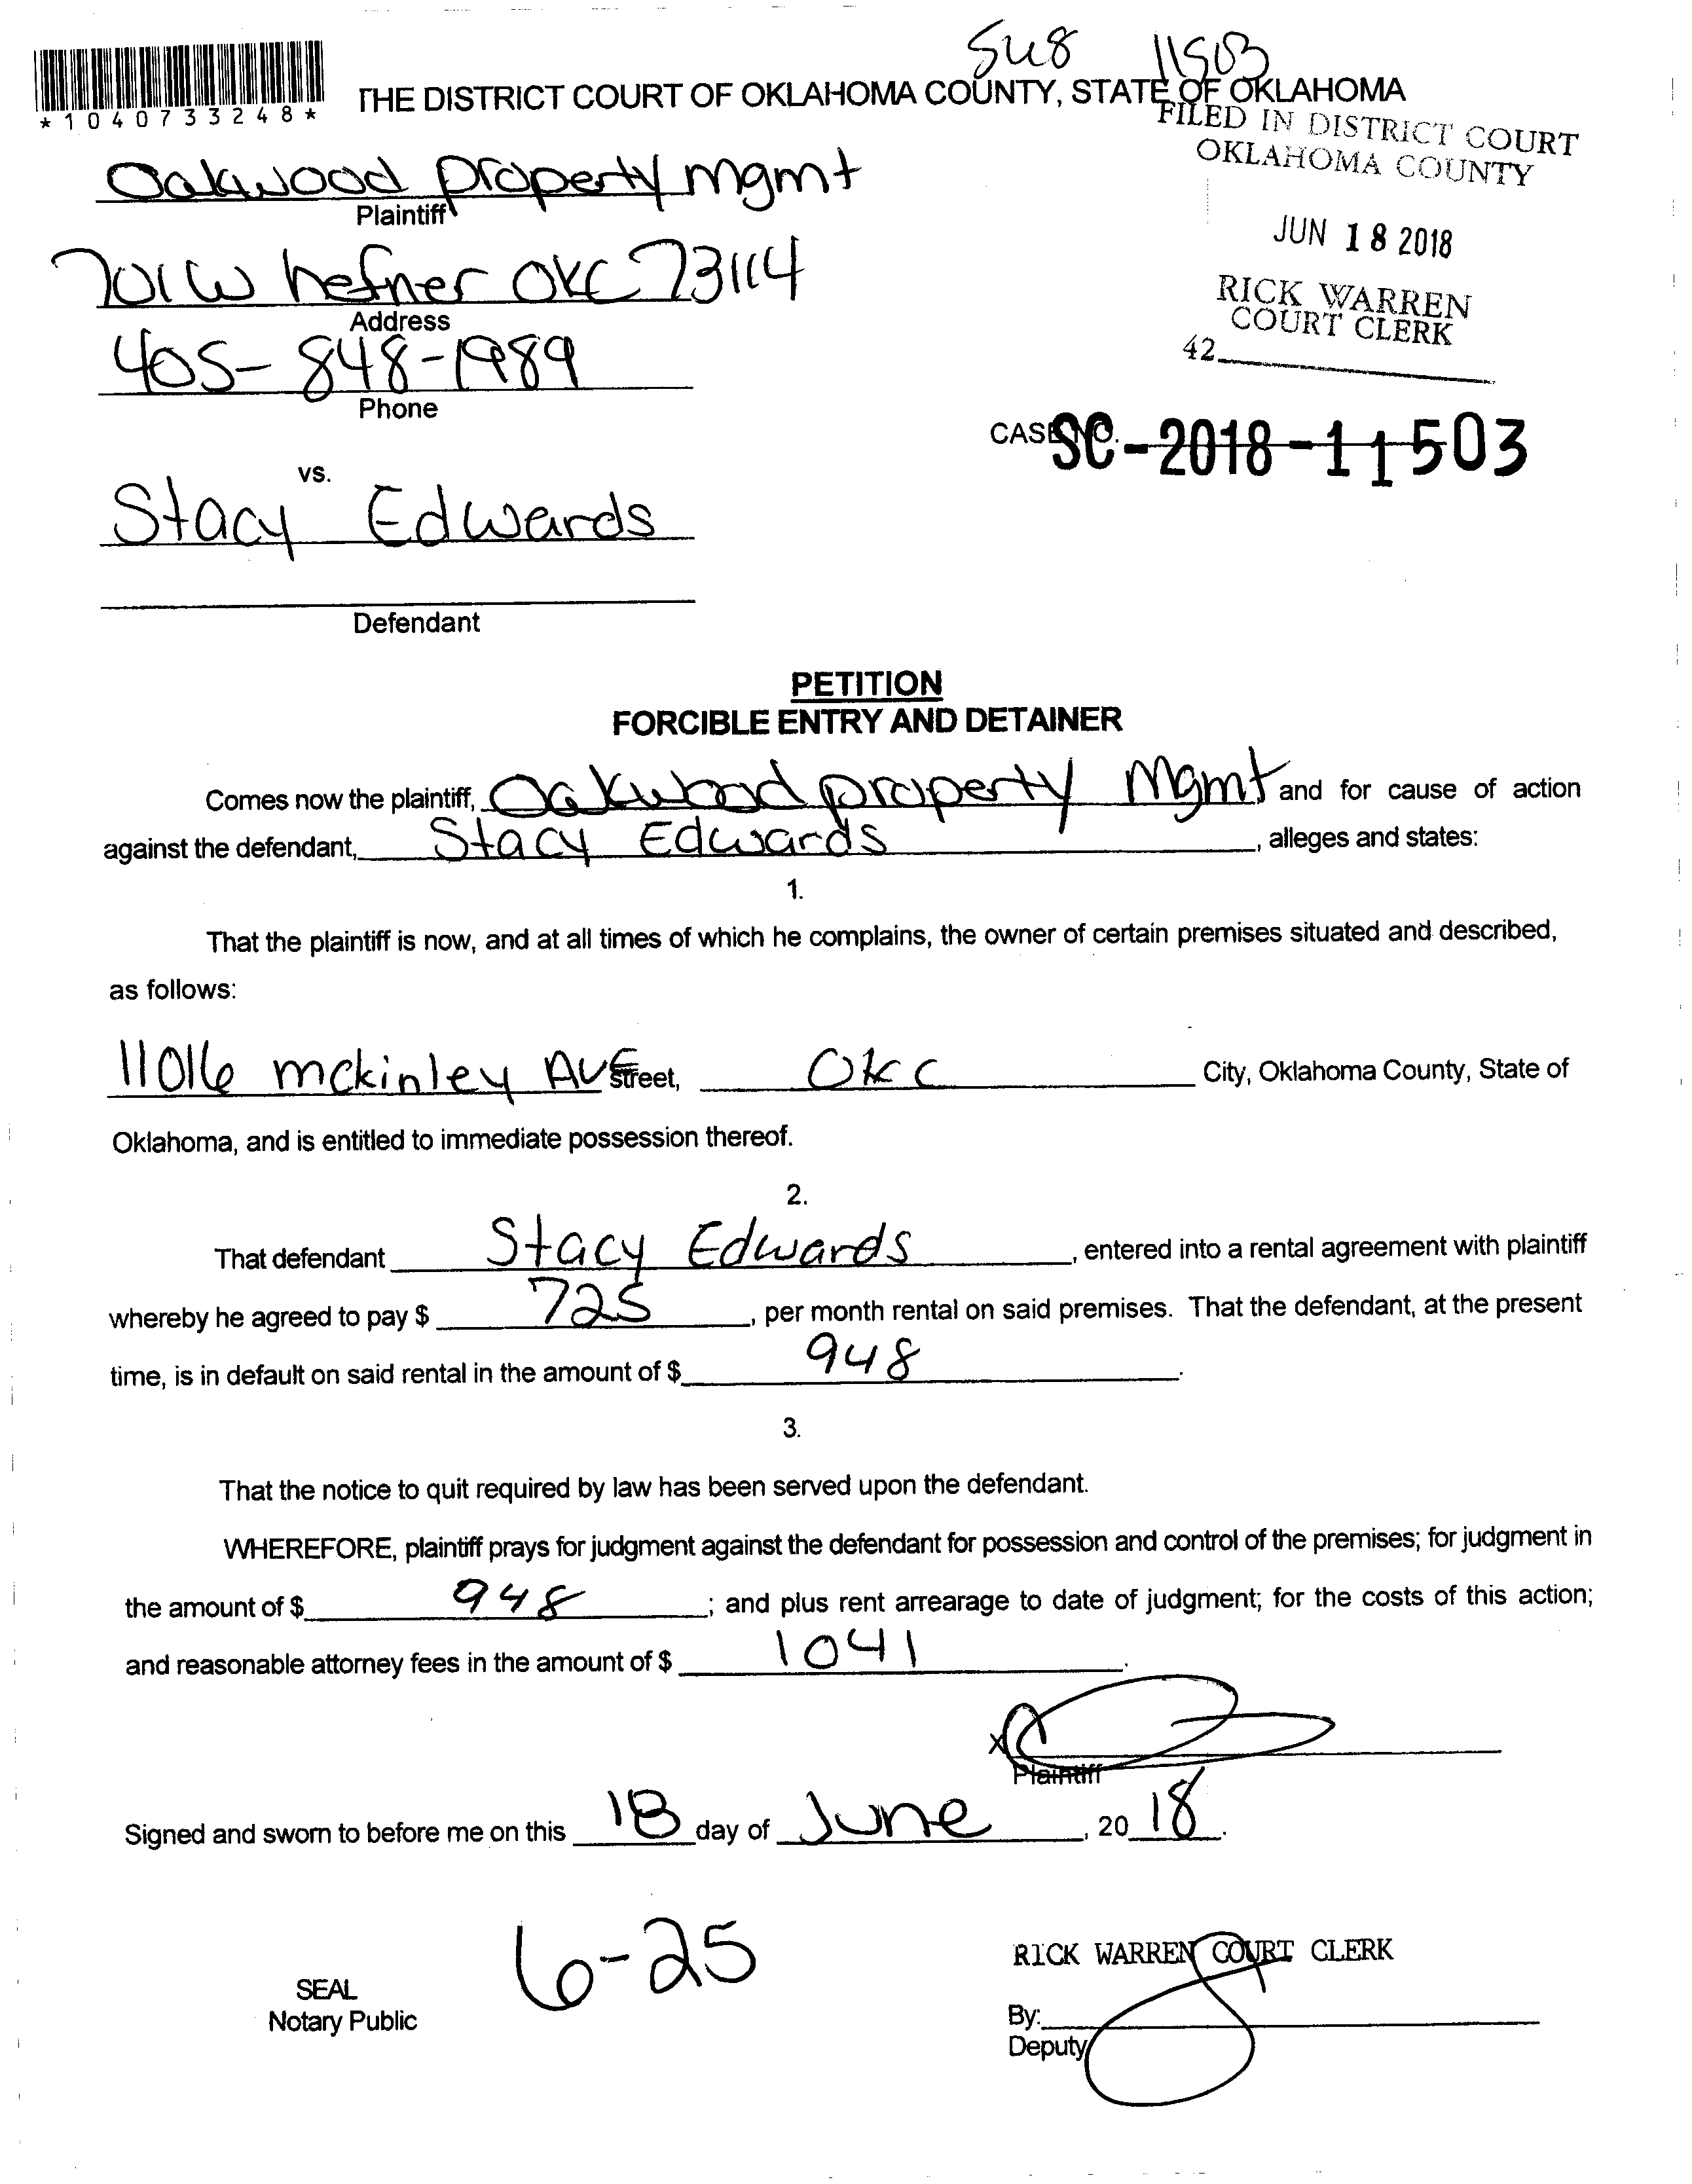 948 11503
*1040733248*
THE DISTRICT COURT OF OKLAHOMA COUNTY, STATE OF OKLAHOMA
FILED IN DISTRICT COURT
OKLAHOMA COUNTY
JUN 18 2018
RICK WARREN
COURT CLERK
42
Oakwood property mgmt
Plaintiff
701 W hefner OKC 73114
Address
405-848-1989
Phone
CASE NO. SC-2018-11503
vs.
Stacy Edwards
Defendant
PETITION
FORCIBLE ENTRY AND DETAINER
Comes now the plaintiff, Oakwood property Mgmt and for cause of action
against the defendant, Stacy Edwards, alleges and states:
1.
That the plaintiff is now, and at all times of which he complains, the owner of certain premises situated and described,
as follows:
11016 mckinley AVE Street, OKC City, Oklahoma County, State of
Oklahoma, and is entitled to immediate possession thereof.
2.
That defendant Stacy Edwards, entered into a rental agreement with plaintiff
whereby he agreed to pay $ 725, per month rental on said premises. That the defendant, at the present
time, is in default on said rental in the amount of $ 948.
3.
That the notice to quit required by law has been served upon the defendant.
WHEREFORE, plaintiff prays for judgment against the defendant for possession and control of the premises; for judgment in
the amount of $ 948; and plus rent arrearage to date of judgment; for the costs of this action;
and reasonable attorney fees in the amount of $ 1041.
X
Plaintiff
Signed and sworn to before me on this 18 day of June, 20 18.
6-25
SEAL
Notary Public
RICK WARREN COURT CLERK
By:
Deputy